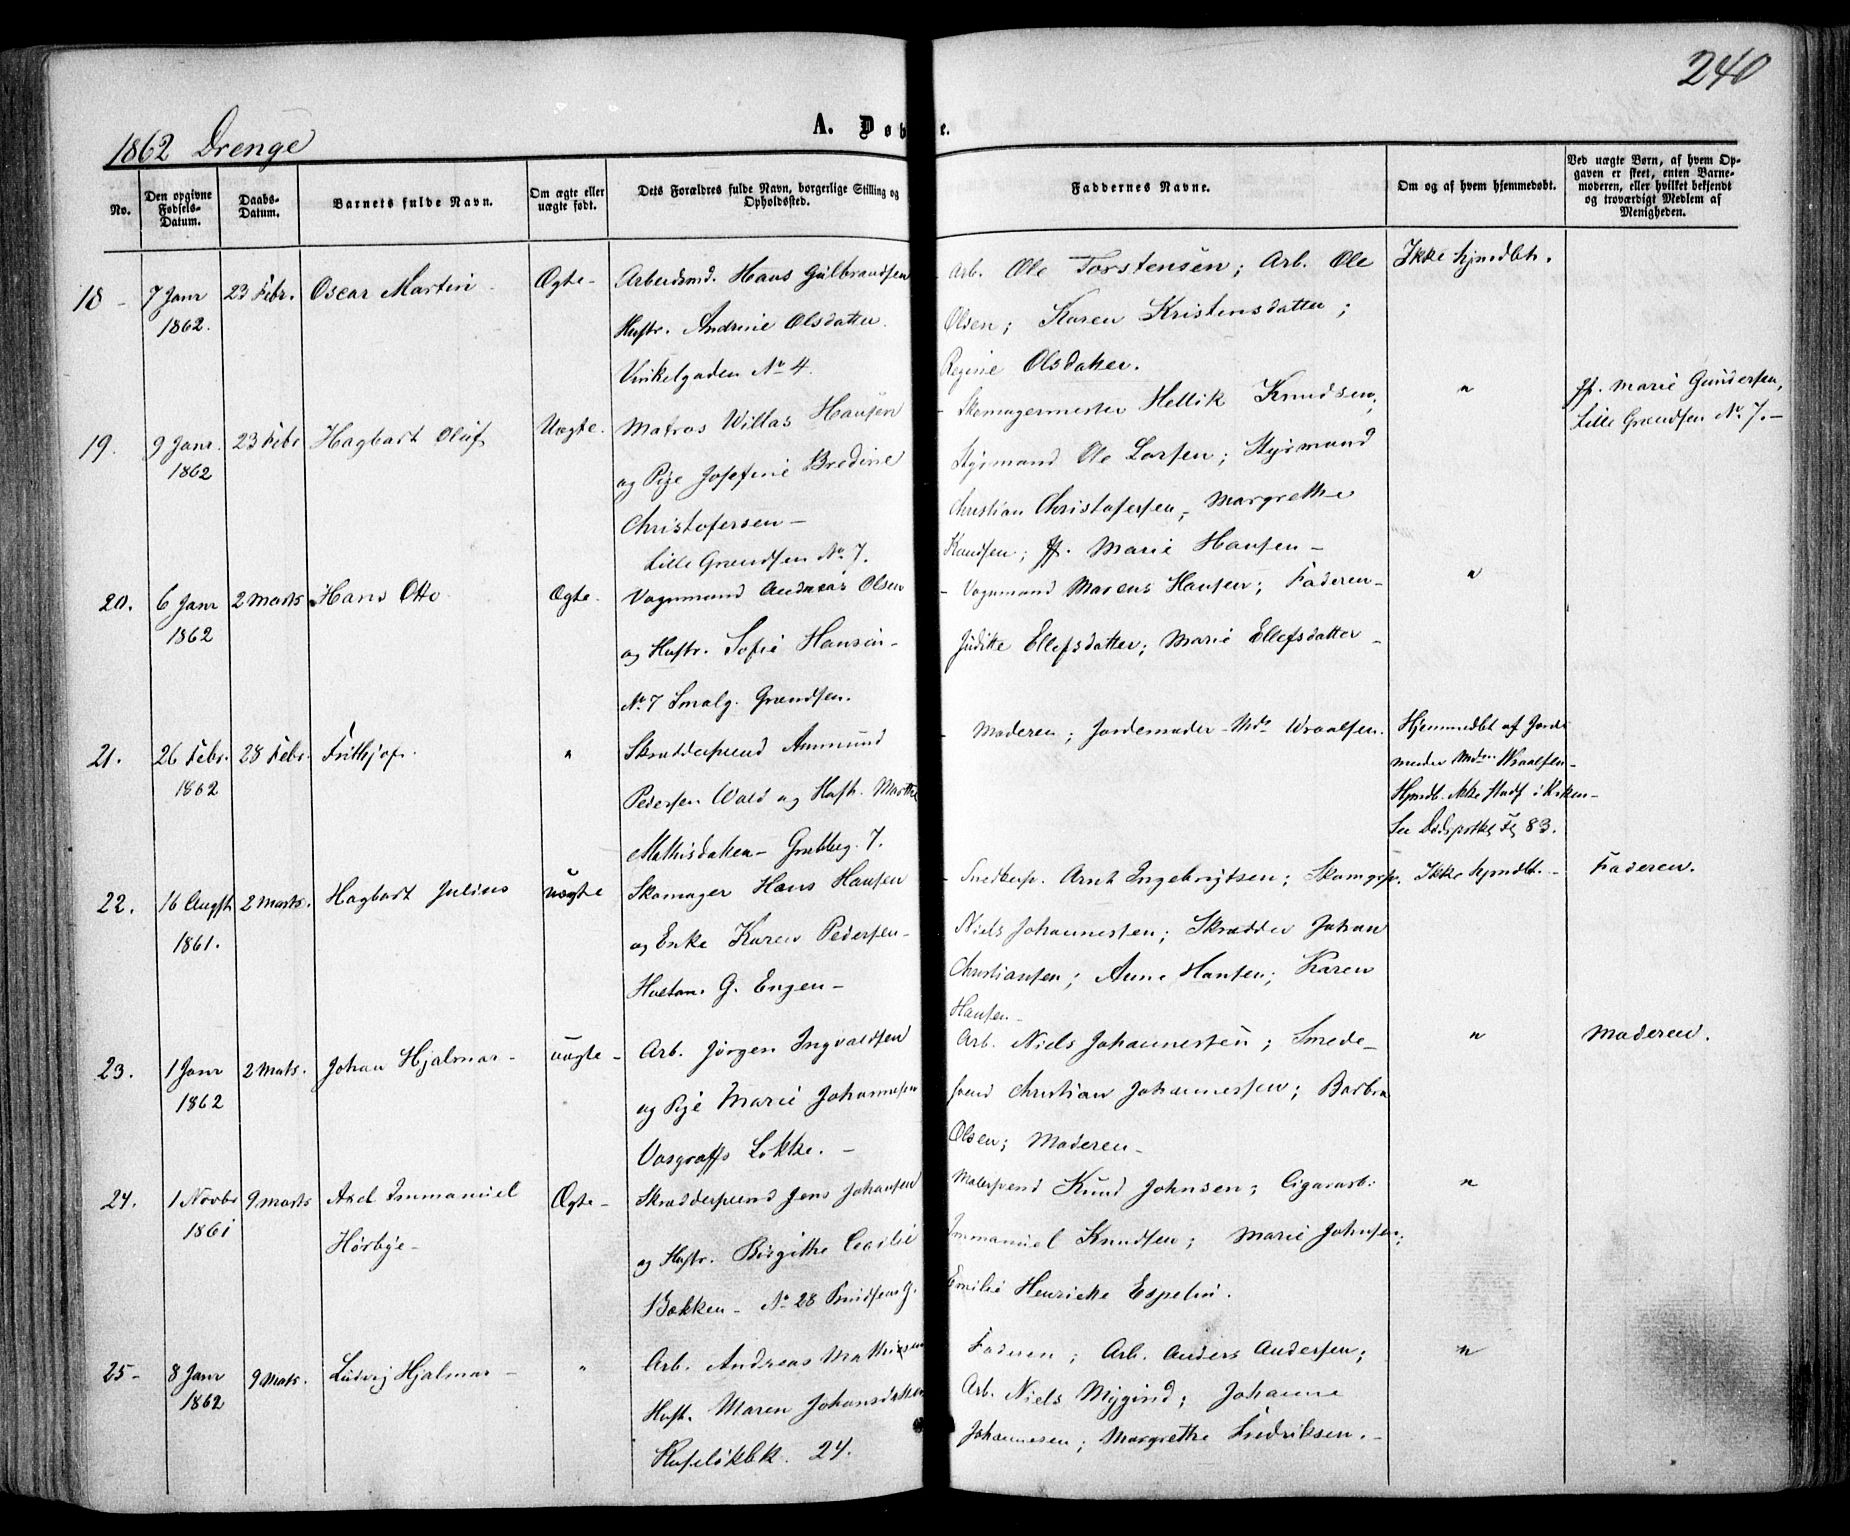 240
A. Døbte.
1862 Drenge
No.
Den opgivne Fødsels-Datum.
Daabs-Datum.
Barnets fulde Navn.
Om ægte eller uægte født.
Dets Forældres fulde Navn, borgerlige Stilling og Opholdssted.
Faddernes Navne.
Om og af hvem hjemmedøbt.
Ved uægte Børn, af hvem Opgaven er skeet, enten Barnemoderen, eller hvilket bekjendt og troværdigt Medlem af Menigheden.
18 - 7 Janr 1862. 23 Febr. Oscar Martin - Ægte -
Arbeidsmd. Hans Gulbrandsen
Hustr. Andrine Olsdatter.
Vinkelgaden No 4.
- Arb. Ole Torstensen; Arb. Ole
Olsen; Karen Kristensdatter;
Regine Olsdatter.
Ikke hjmdbt.
19. 9 Janr. 1862 23 Febr Hagbart Oluf Uægte.
Matros Willas Hansen
og Pige Josefine Bredine
Christofersen -
Lille Grændsen No 7.
- Skomagermester Hellik Knudsen;
Styrmand Ole Larsen; Styrmand
Christian Christofersen, Margrethe
Knudsen; Jf. Marie Hansen -
"
Jf. Marie Gundersen,
Lille Grændsen No 7. -
20. 6 Janr 1862 2 Marts Hans Otto Ægte.
Vognmand Andreas Olsen
og Hustr. Sofie Hansen -
No 7 Smalg. Grændsen.
- Vognmand Marcus Hansen; Faderen -
Juditte Ellefsdatter; Marie Ellefsdatter -
"
21. 26 Febr. 1862 28 Febr. Frithjof. "
Skræddersvend Ammund
Pedersen Wald og Hustr. Marthe
Mathisdatter - Grubbeg. 7.
- Moderen; Jordemoder Mde Wraalsen.
Hjemmedbt af Jorde
moder Mden Wraalsen -
Hjmdb. ikke stadf. i Kirken -
Se Dødsprotkl Fg 83.
22. 16 Augst 1861. 2 Marts. Hagbart Julius uægte
Skomager Hans Hansen
og Enke Karen Pedersen -
G. Engen -
- Snedkersv. Arnt Ingebrigtsen; Skomgsv.
Niels Johannessen; Skrædder Johan
Christiansen; Anne Hansen; Karen
Hansen -
Ikke hjmdbt. -
Faderen.
23. 1 Janr 1862 2 Mats. Johan Hjalmar - uægte -
Arb. Jørgen Ingvaldsen
og Pige Marie Johannesen
Vosgraffs Løkke. -
Arb. Niels Johannessen; Smede-
svend Christian Johannessen; Barbra
Olsen; Moderen -
"
Moderen.
24. 1 Novbr 1861 9 Marts Axel Immanuel
Hørbye - Ægte -
Skræddersvend Jens Johansen
og Hustr. Birgithe Cecilie
Bækken - No 28 G.
Malersvend Knud Johnsen; Cigararb:
Immanuel Knudsen; Marie Johnsen;
Emilie Henricke Espelin.
"
25 - 8 Janr 1862 9 Mats. Ludvig Hjalmar - "
Arb. Andreas Mathisen
Hustr. Maren Johansdatter
24.
Faderen; Arb. Anders Andersen;
Arb. Niels Mygind; Johanne
Johannesen; Margrethe Fredriksen. -
"